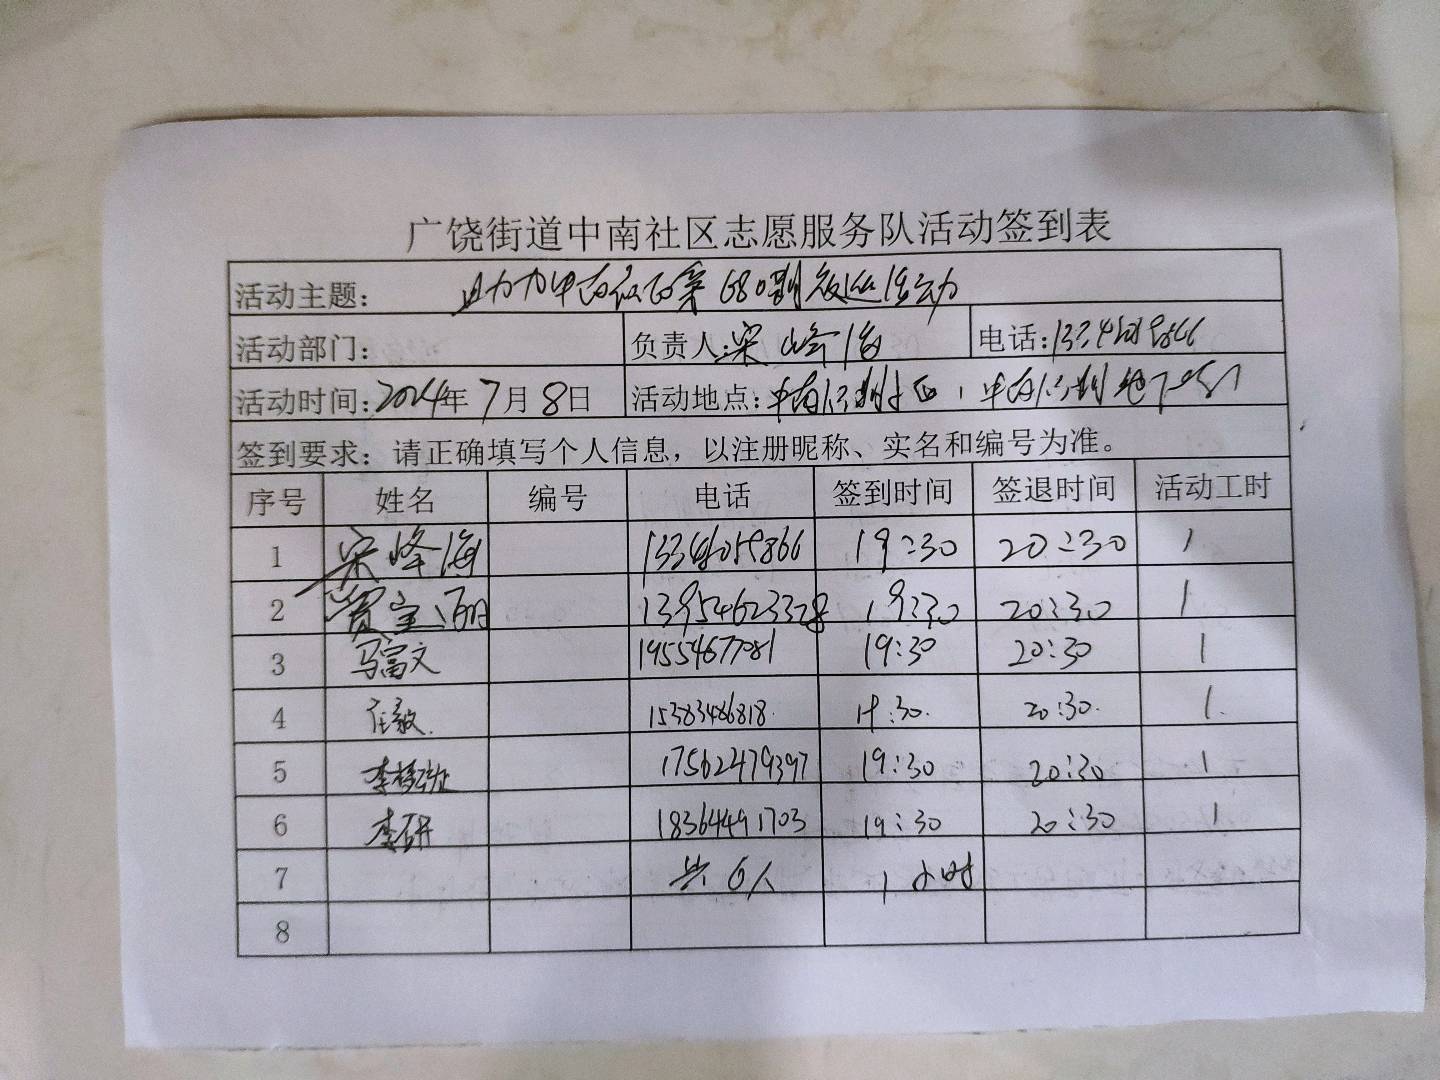 广饶街道中南社区志愿服务队活动签到表
活动主题: 助力中南社区第680期夜巡活动
活动部门: 负责人: 宋峰海 电话:
活动时间: 2024年7月8日 活动地点:
签到要求: 请正确填写个人信息，以注册昵称、实名和编号为准。
序号 姓名 编号 电话 签到时间 签退时间 活动工时
1 宋峰海 19:30 20:30 1
2 13954623328 19:30 20:30 1
3 马富文 19554677081 19:30 20:30 1
4 任毅 15383486818 19:30 20:30 1
5 17562479397 19:30 20:30 1
6 李研 18364491703 19:30 20:30 1
7 共6人 1小时
8